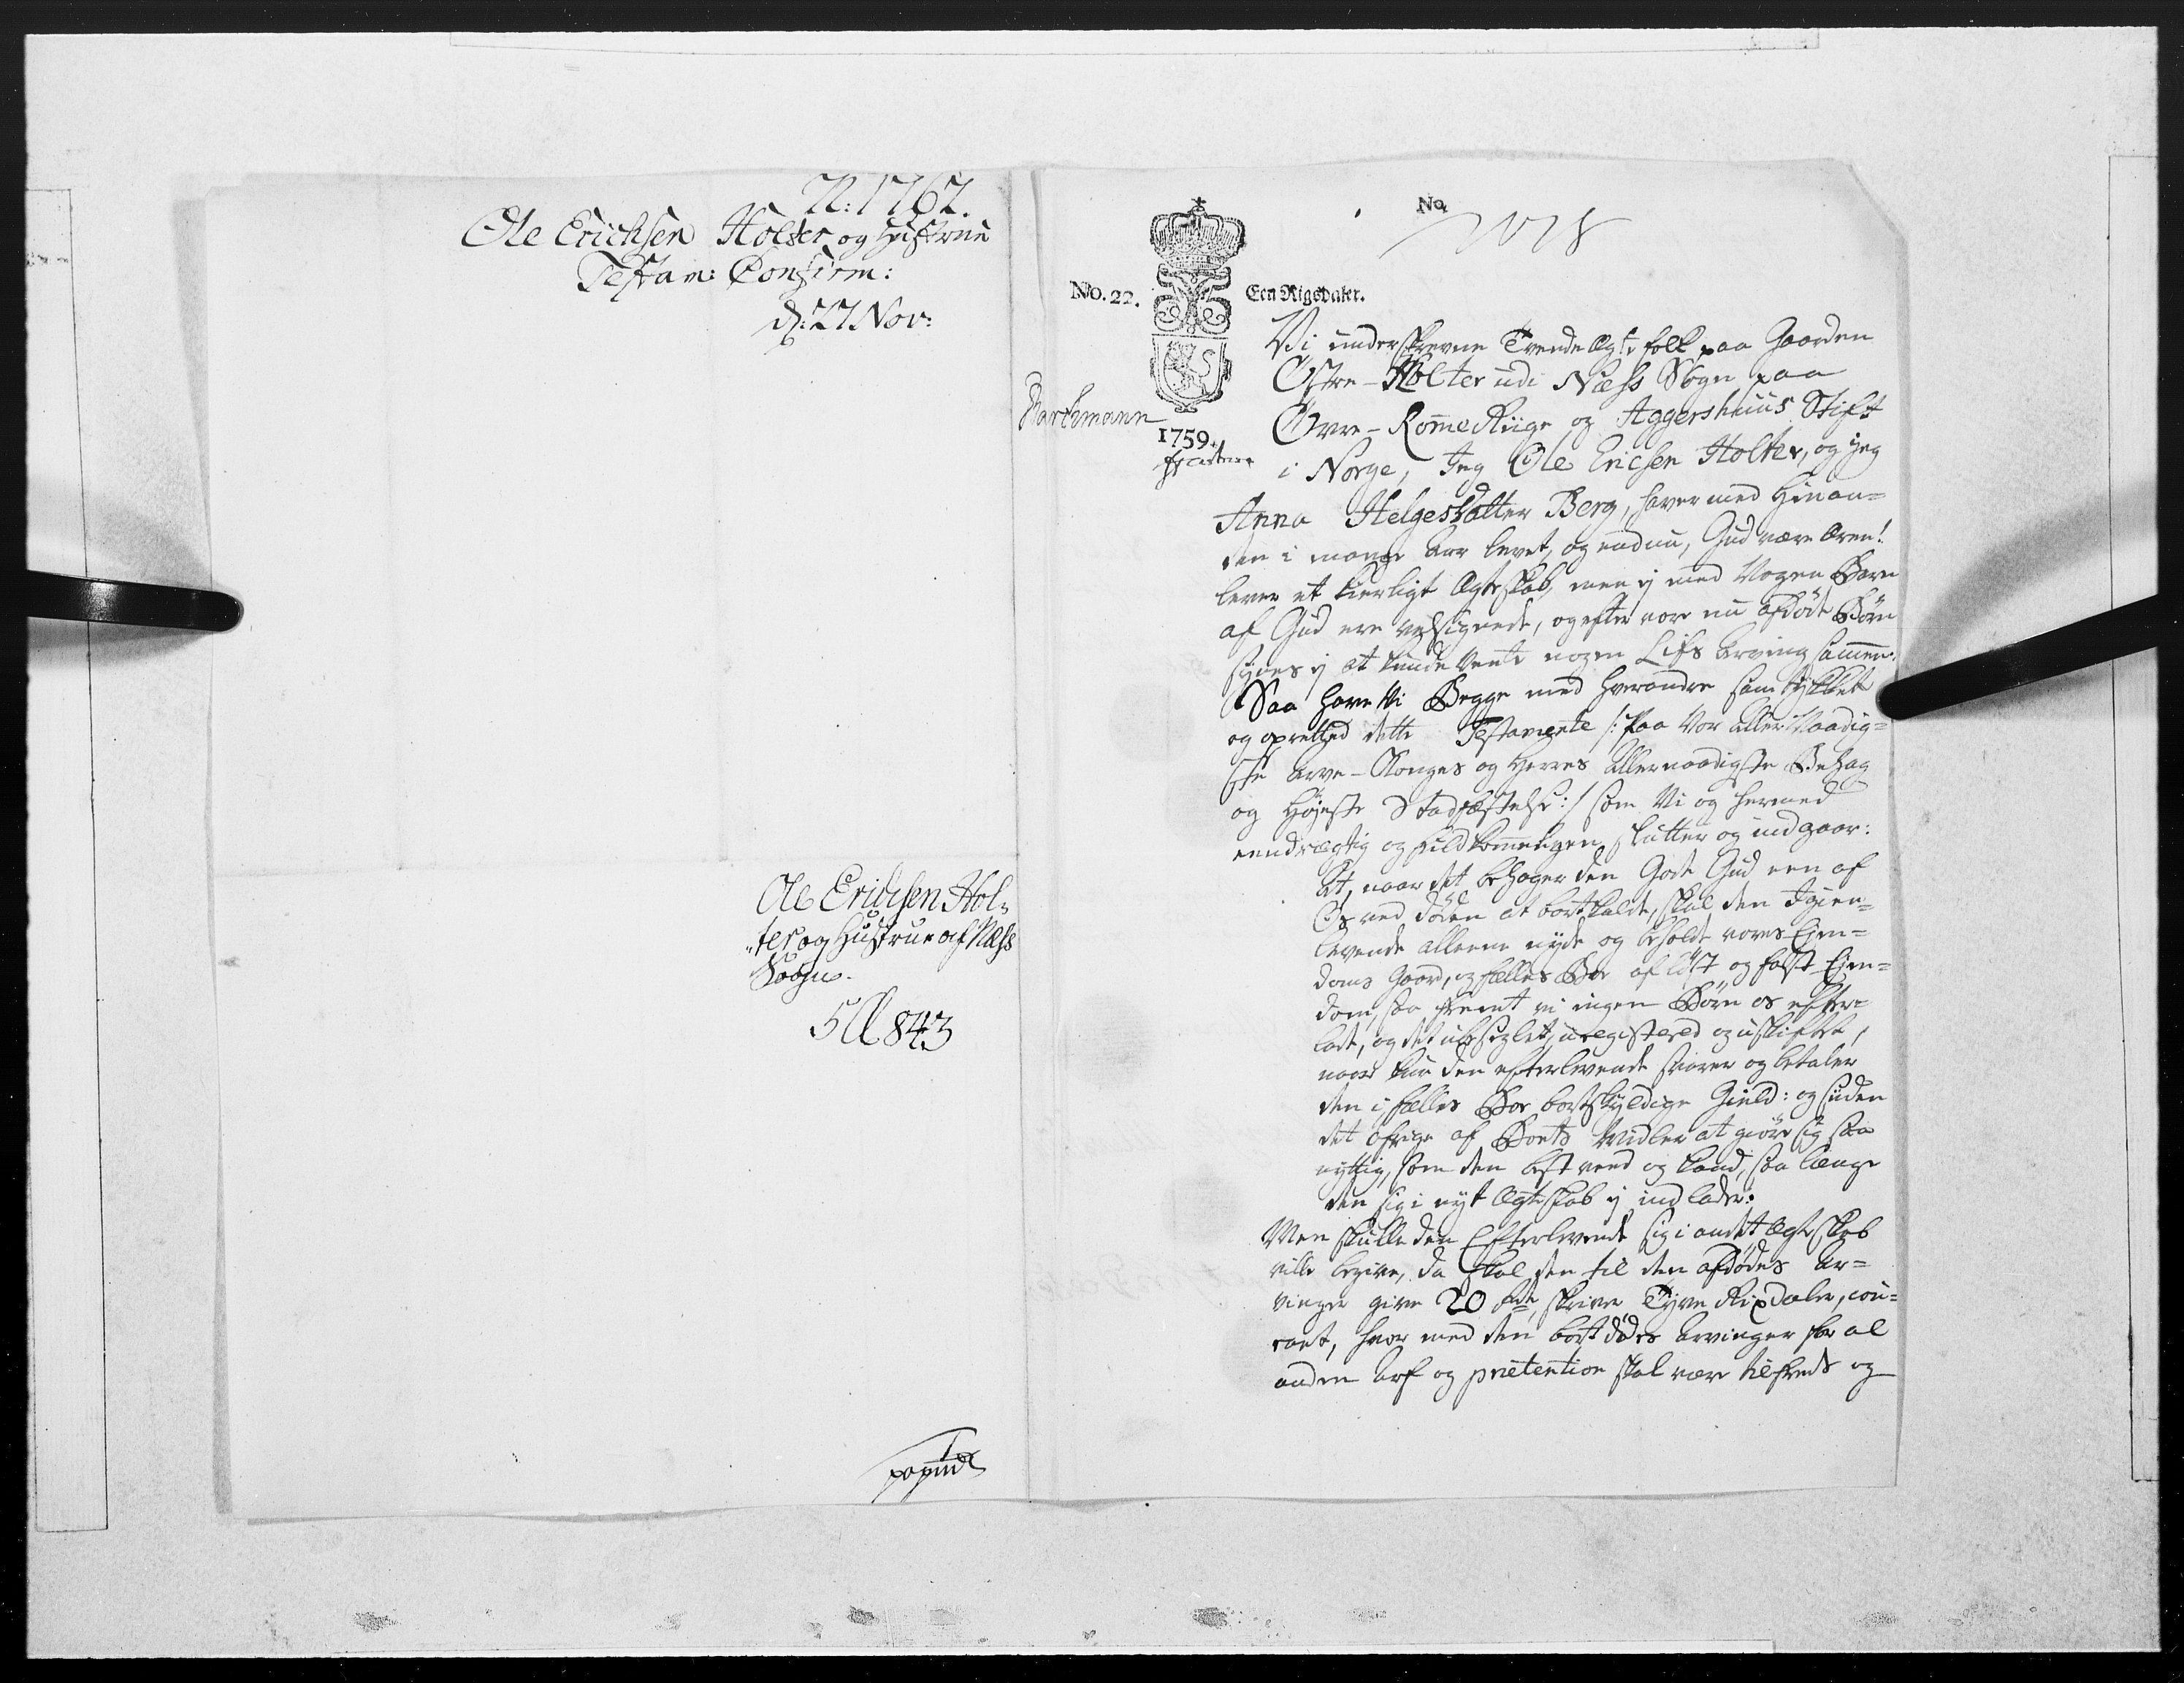 N: 1762.
Ole Erichsen Holter og Hustrue
Testam: Confirm:
d: 27 Nov:
Ole Erichsen Hol-
"ter og Hustrue af Næss
Sogn.
843
No.
No. 22.
Een Rigsdaler.
1759.
Vi underskrevne Tvende Ægte folk paa Gaarden
Østre-Holter udi Næss Sogn paa
Øvre-RommeRiige og Aggershuus Stift
i Norge, Jeg Ole Ericsen Holter, og jeg
Anna Helgesdatter Berg, haver med Hinan=
den i mange Aar levet, og endnu, Gud være Æren!
lever et kierligt Ægteskab, men ej med Nogen Barn
af Gud ere velsignede, og efter vore nu afdøde Børn
synes ej at kunde vente nogen Lifs Arving sammen.
Saa have Vi Begge med hverandre samtykket
og opretted dette Testamente /: Paa Vor Aller Naadig=
ste Arve-Konges og Herres Allernaadigste Behag
og Højeste Stadfæstelse :/ som Vi og hermed
eendrægtig og fuldkommeligen slutter og indgaar:
At, naar det behager den Gode Gud een af
Os ved døden at bortkalde, skal den Igien=
levende alleene nyde og beholde vores Ejen=
doms Gaard, og fælles Boe af løst og fast Ejen=
dom, saa fremt vi ingen Børn os efter=
lade, og det ubeseglet, uregistered og uskiftet,
naar kun den efterlevende svarer og betaler
den i fælles Boe bortskyldige Gield: og siden
det øfrige af Boets Midler at giøre sig saa
nyttig, som den best veed og kand, saa længe
den sig i nyt Ægteskab ej indlader:
Men skulle den Efterlevende sig i andet Ægteskab
ville begive, da skal den til den afdødes Ar=
vinger give 20 rdr, skrive Tyve Rixdaler, cou=
rant, hvor med den bortdødes Arvinger for al
anden Arf og prætention skal være tilfreds og